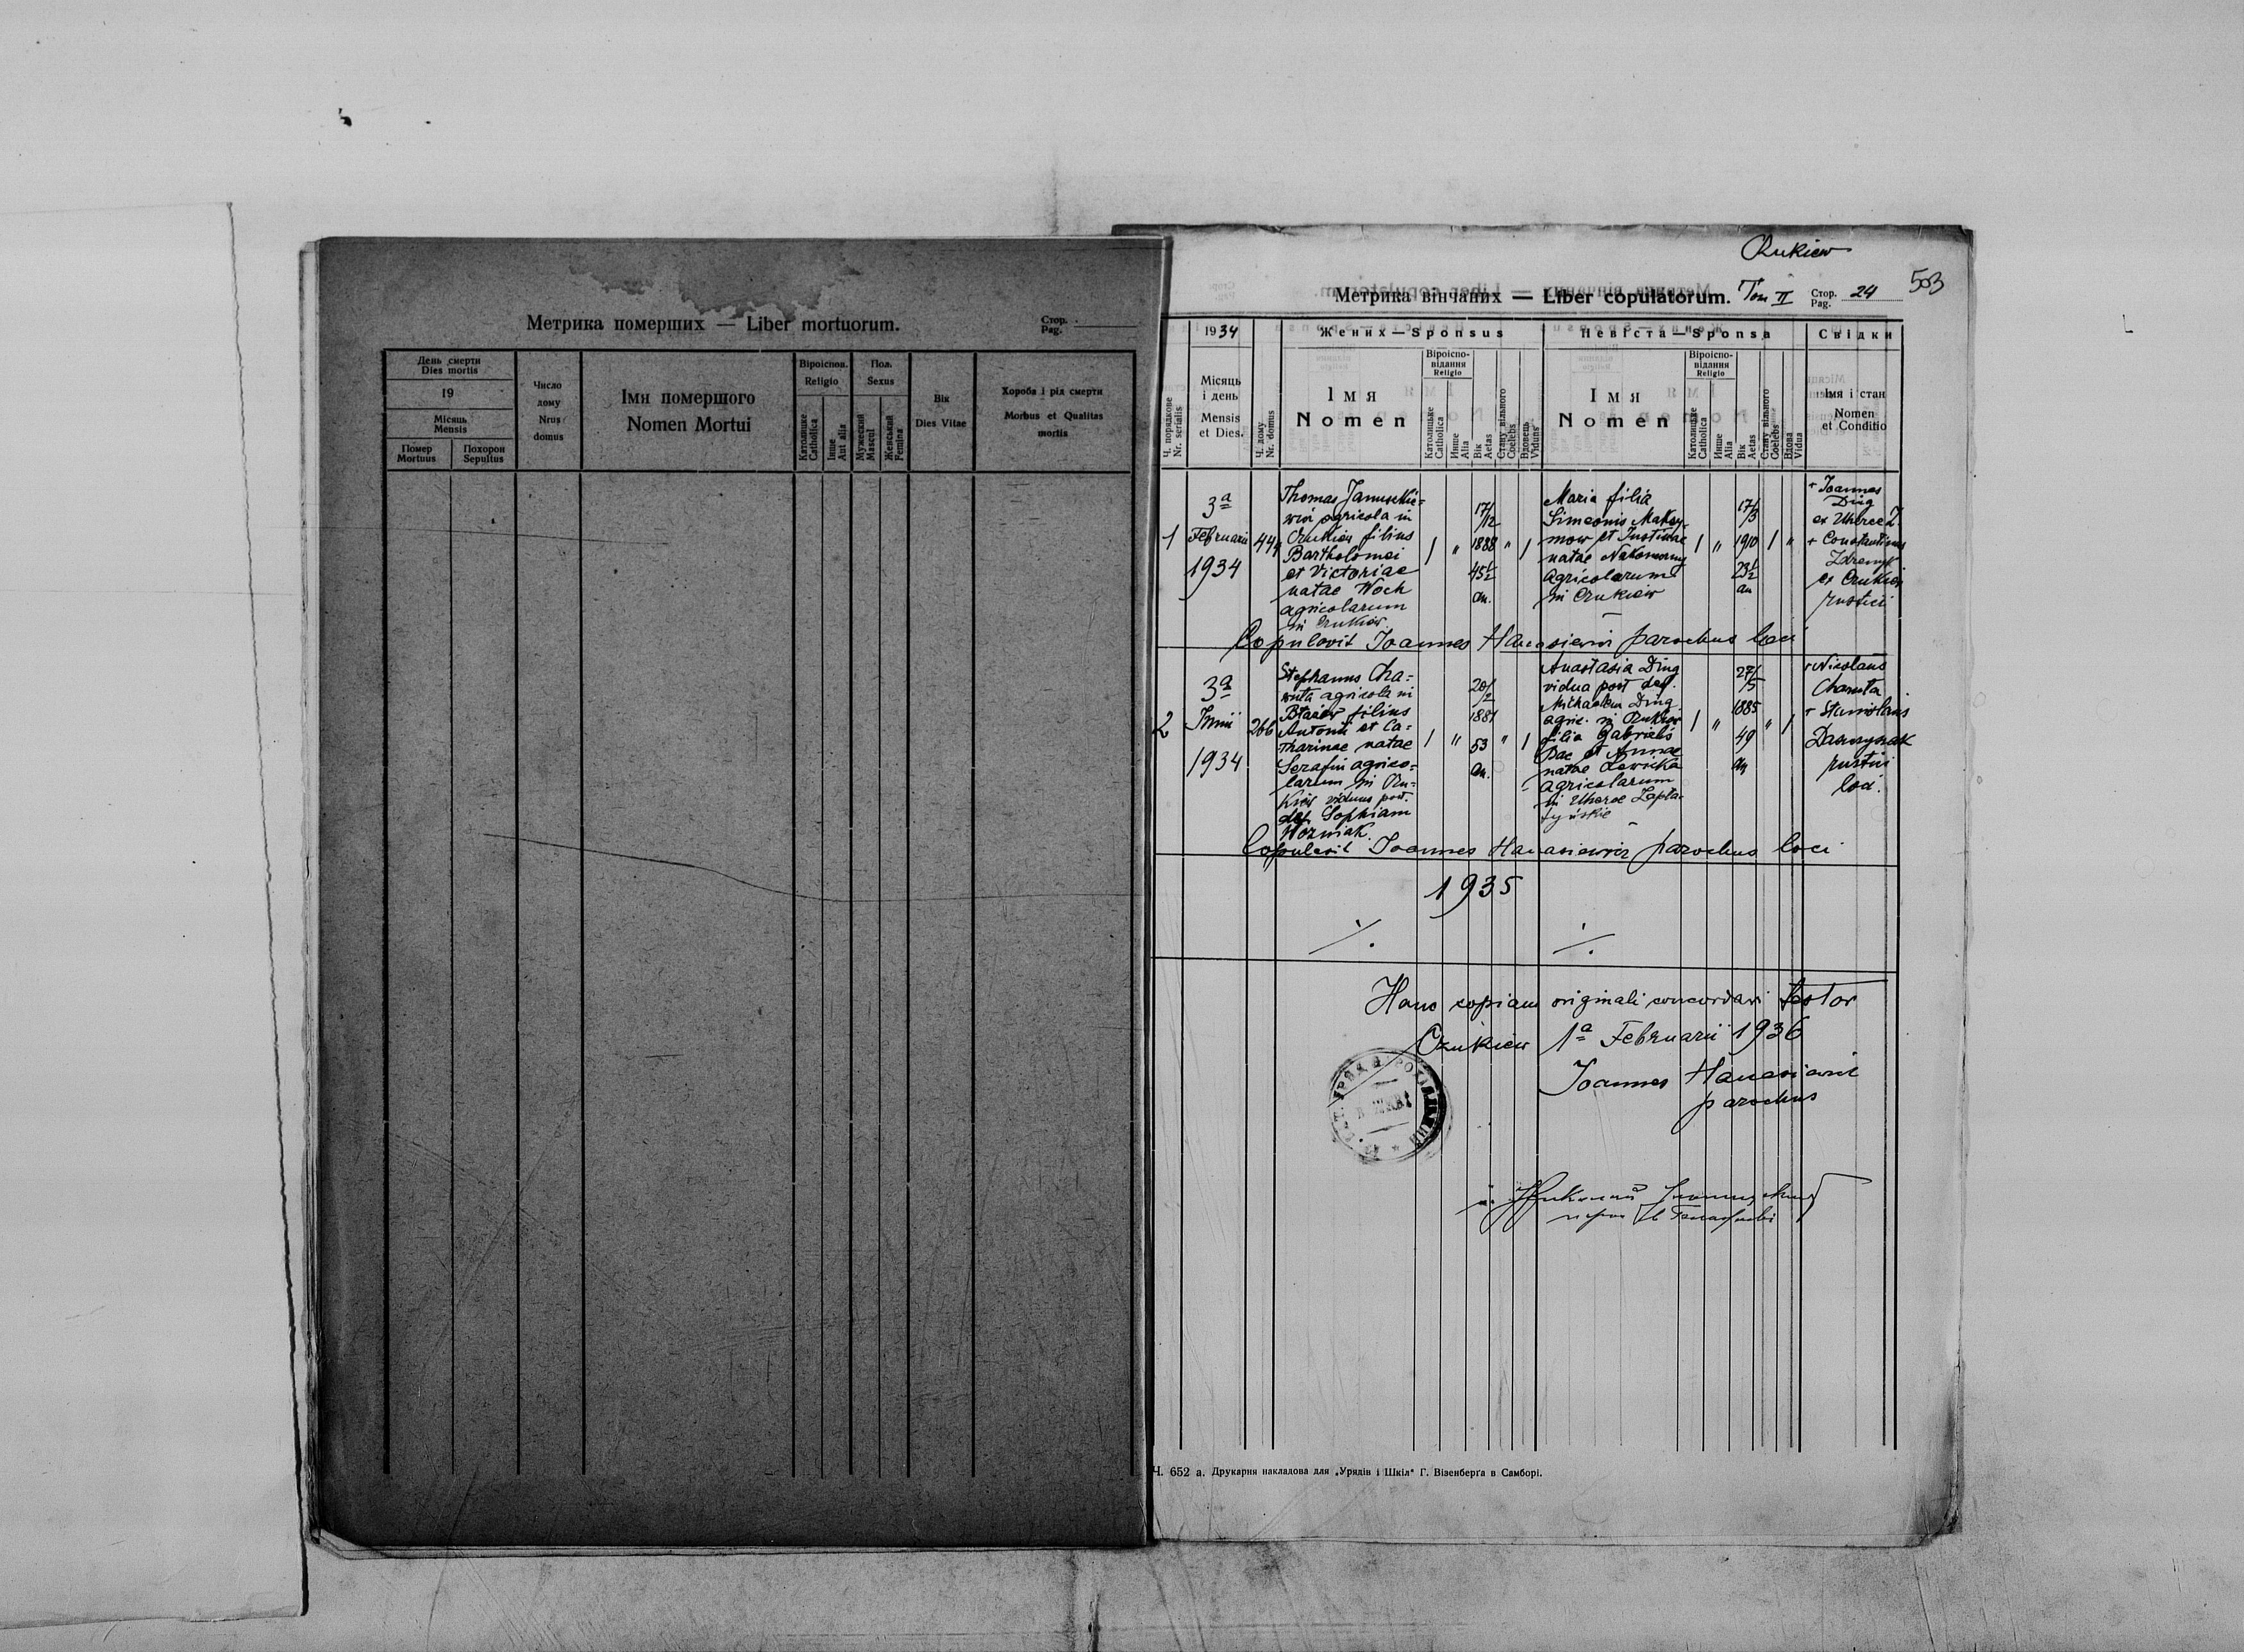 Метрика померших — Liber mortuorum.
Стор.
Pag.
День смерти
Dies mortis
19
Місяць
Mensis
Помер
Mortuus
Похорон
Sepultus
Число
дому
Nrus
domus
Імя помершого
Nomen Mortui
Віроіспов.
Religio
Католицке
Catholica
Інше
Aut alia
Пол.
Sexus
Мужеский
Mascul
Женський
Femina
Вік
Dies Vitae
Хороба і рід смерти
Morbus et Qualitas
mortis
Czukiew
Метрика вінчаних — Liber copulatorum. Tom II
Стор.
Pag. 24
503
Ч. порядкове
Nr. serialis
1934
Місяць
і день
Mensis
et Dies.
Ч. дому
Nr. domus
Жених — Sponsus
Імя
Nomen
Віроіспо-
відання
Religio
Католицке
Catholica
Инше
Alia
Вік
Aetas
Стану вільного
Coelebs
Вдовець
Viduus
Невіста — Sponsa
Імя
Nomen
Віроіспо-
відання
Religio
Католицке
Catholica
Инше
Alia
Вік
Aetas
Стану вільного
Coelebs
Вдова
Vidua
Свідки
Імя і стан
Nomen
et Conditio
1
3a
Februarii
1934
444
Thomas Januszkie=
wicz agricola in
Czukiew filius
Bartholomei
et Victoriae
natae Woch
agricolarum
in Czukiew.
1 " 17/12 1888 45½ an. " 1
Maria filia
Simeonis Maksy-
mow et Justinae
natae
agricolarum
in Czukiew
1 " 17/3 1910 23½ an 1 "
+ Joannes
Ding
ex Uherce Z.
+ Constantinus
ex Czukiew
rustici
Copulavit Joannes Hanasiewicz parochus loci
2
3a
Junii
1934
266
Stephanus Cha=
ruta agricola in
filius
Antonii et Ca=
tharinae natae
Serafin agrico=
larum in Czu=
kiew viduus post.
def. Sophiam
Wozniak.
1 " 20/2 1881 53 an. " 1
Anastasia Ding
vidua post def.
Michaelem Ding
agric. in Czukiew
filia Gabrielis
Pac et Annae
natae Lewicka
agricolarum
in Uherce Zapła-
tyńskie
1 " 27/5 1885 49 an " 1
+ Nicolaus
Charuta
+ Stanislaus
rustici
loci.
Copulavit Joannes Hanasiewicz parochus loci
1935
·/. ·/.
Hanc copiam originali concordari testor
Czukiew 1a Februarii 1936
Joannes Hanasiewicz
parochus
Ч. 652 а. Друкарня накладова для „Урядів і Шкіл“ Г. Візенберґа в Самборі.